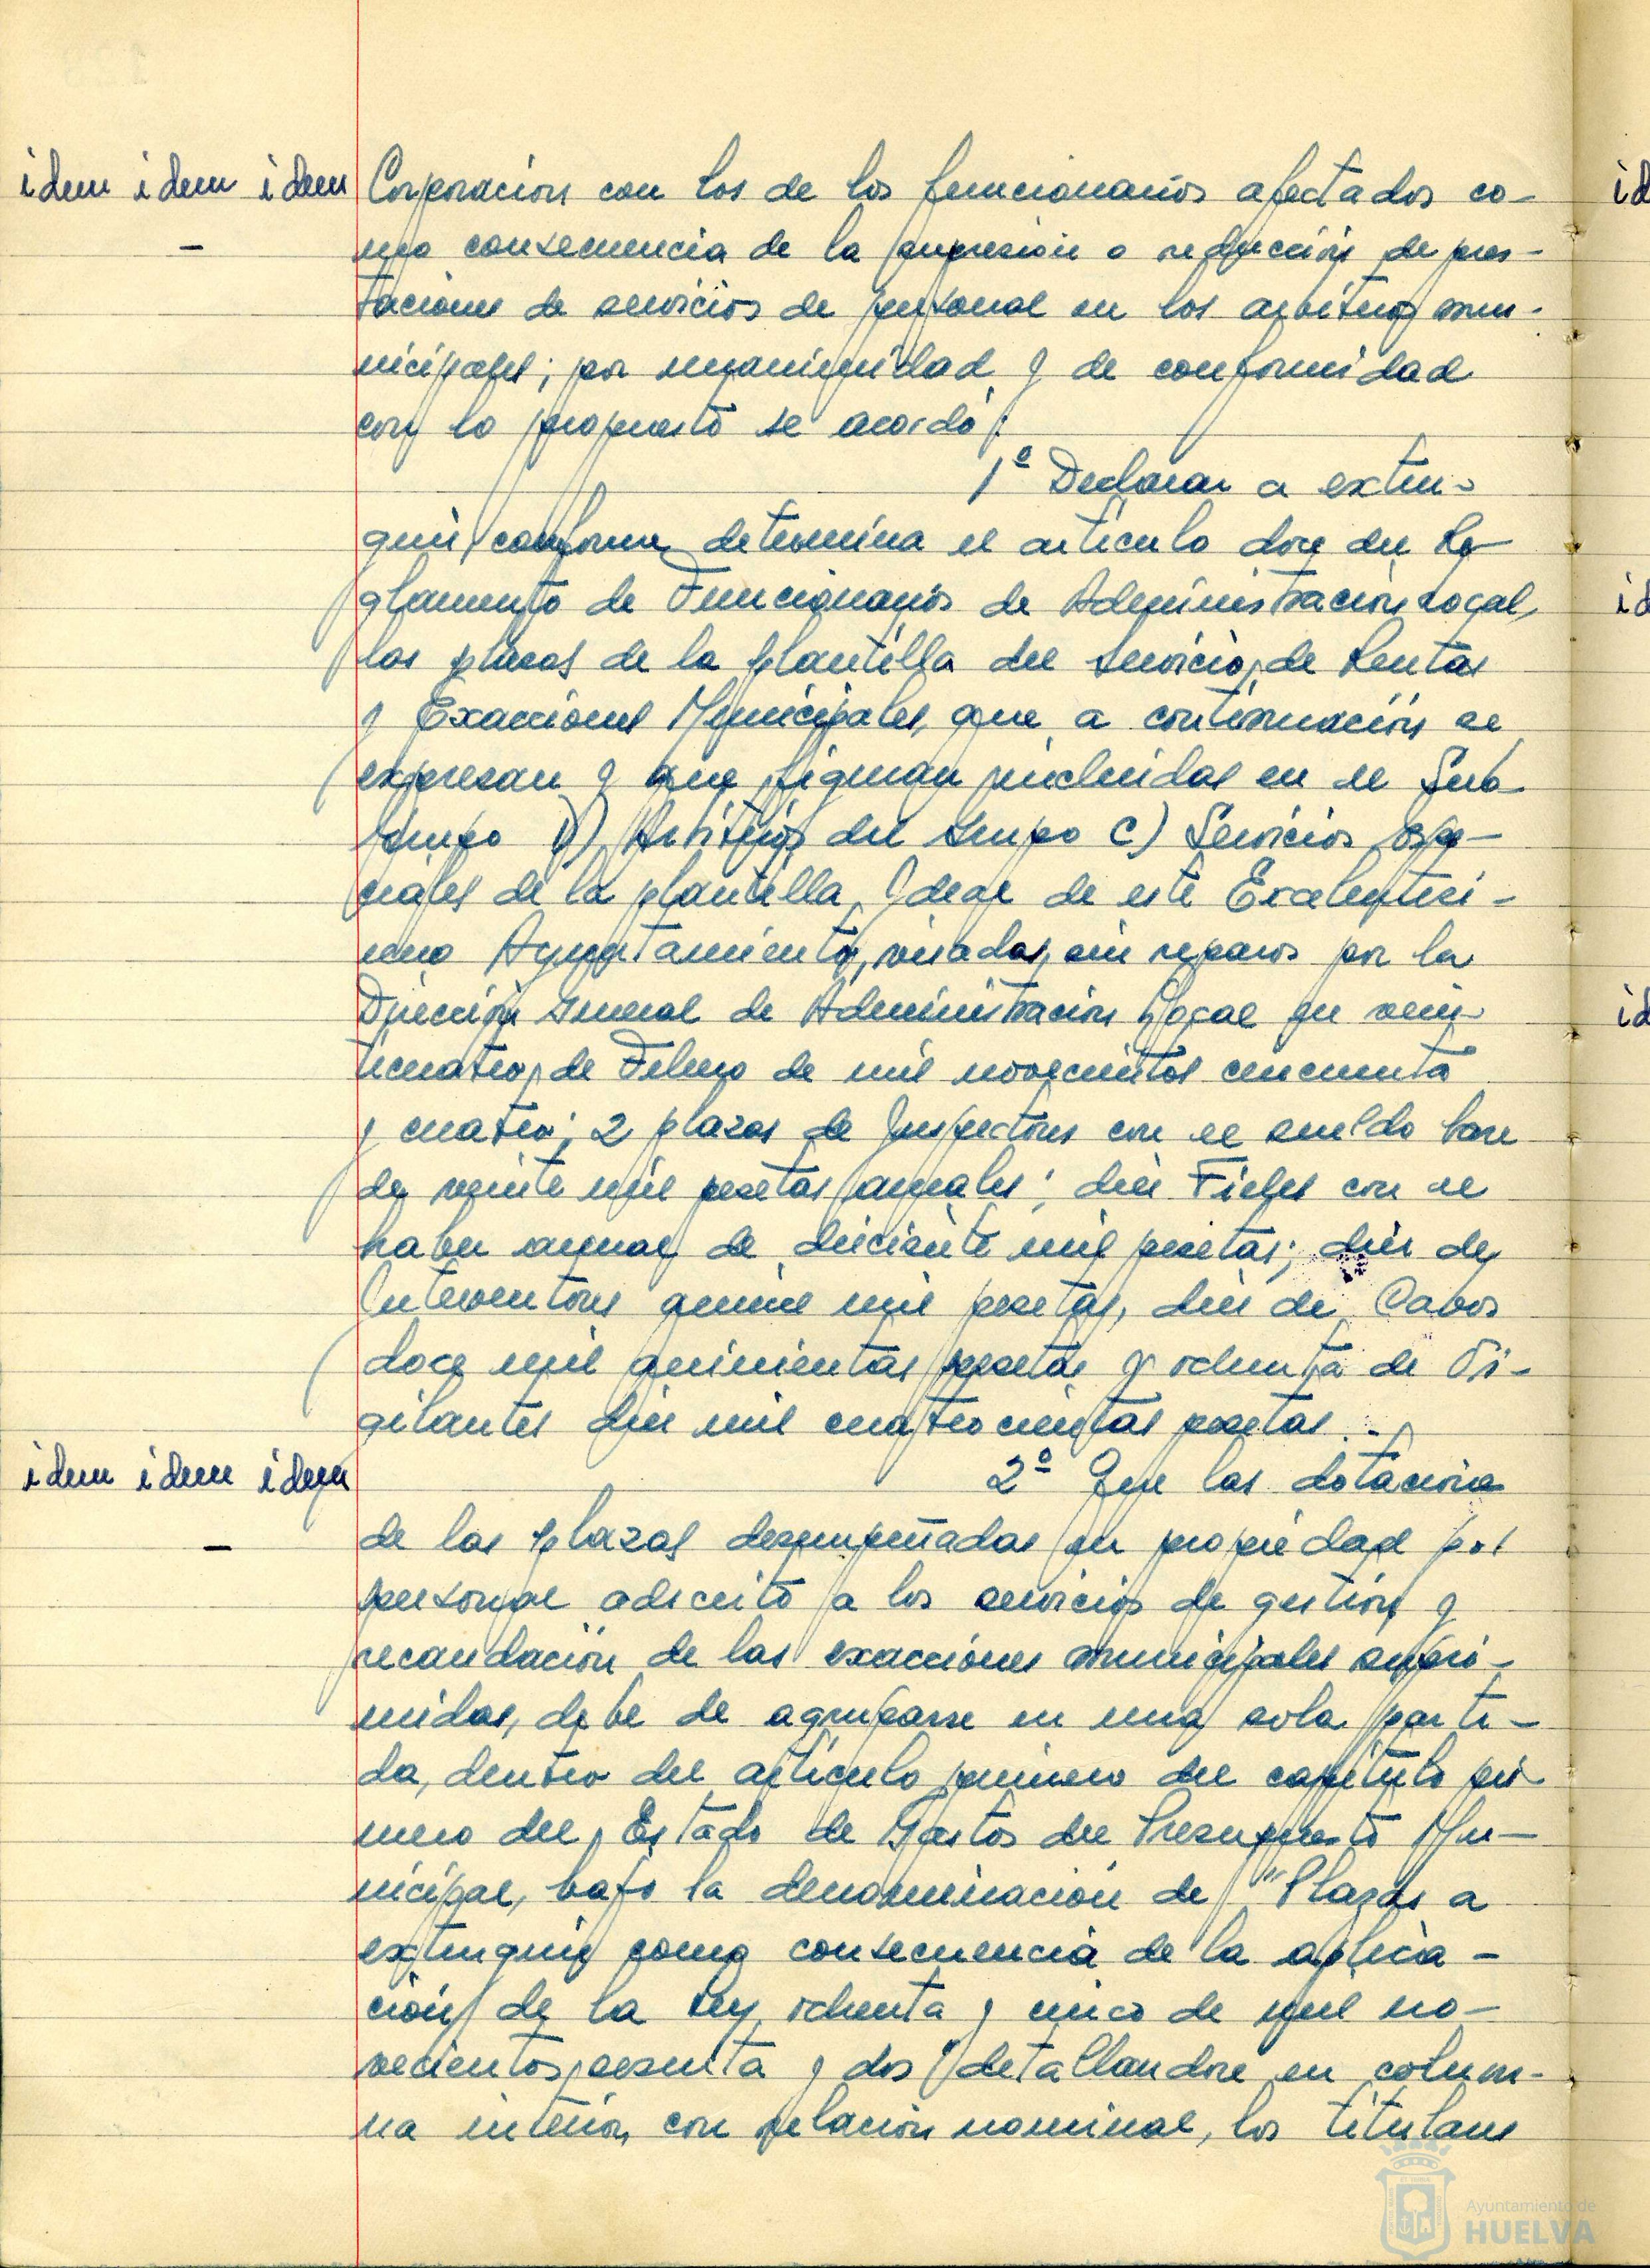 idem idem idem
Corporación con los de los funcionarios afectados co-
mo consecuencia de la supresión o reducción de pres-
taciones de servicios de personal en los arbitrios mu-
nicipales; por unanimidad y de conformidad
con lo propuesto se acordó:
1º Declarar a extin-
guir, conforme determina el artículo doce del Re-
glamento de Funcionarios de Administración Local,
las plazas de la plantilla del Servicio de Rentas
y Exacciones Municipales, que a continuación se
expresan y que figuran incluidas en el Sub-
grupo D) Arbitrios del Grupo C) Servicios espe-
ciales de la plantilla Ideal de este Excelentísi-
mo Ayuntamiento, visadas sin reparos por la
Dirección General de Administración Local en vein-
ticuatro de Febrero de mil novecientos cincuenta
y cuatro; 2 plazas de Inspectores con el sueldo base
de veinte mil pesetas anuales; diez Fieles con el
haber anual de diecisiete mil pesetas; diez de
Interventores quince mil pesetas, diez de Cabos
doce mil quinientas pesetas y ochenta de Vi-
gilantes diez mil cuatrocientas pesetas.-
idem idem idem
2º Que las dotaciones
de las plazas desempeñadas en propiedad por
personal adscrito a los servicios de gestión y
recaudación de las exacciones municipales supri-
midas, debe de agruparse en una sola parti-
da, dentro del artículo primero del capítulo pri-
mero del Estado de Gastos del Presupuesto Mu-
nicipal, bajo la denominación de "Plazas a
extinguir como consecuencia de la aplica-
ción de la Ley ochenta y cinco de mil no-
vecientos sesenta y dos" detallandose en colum-
na interior, con relación nominal, los titulares
id
id
id
Ayuntamiento de
HUELVA